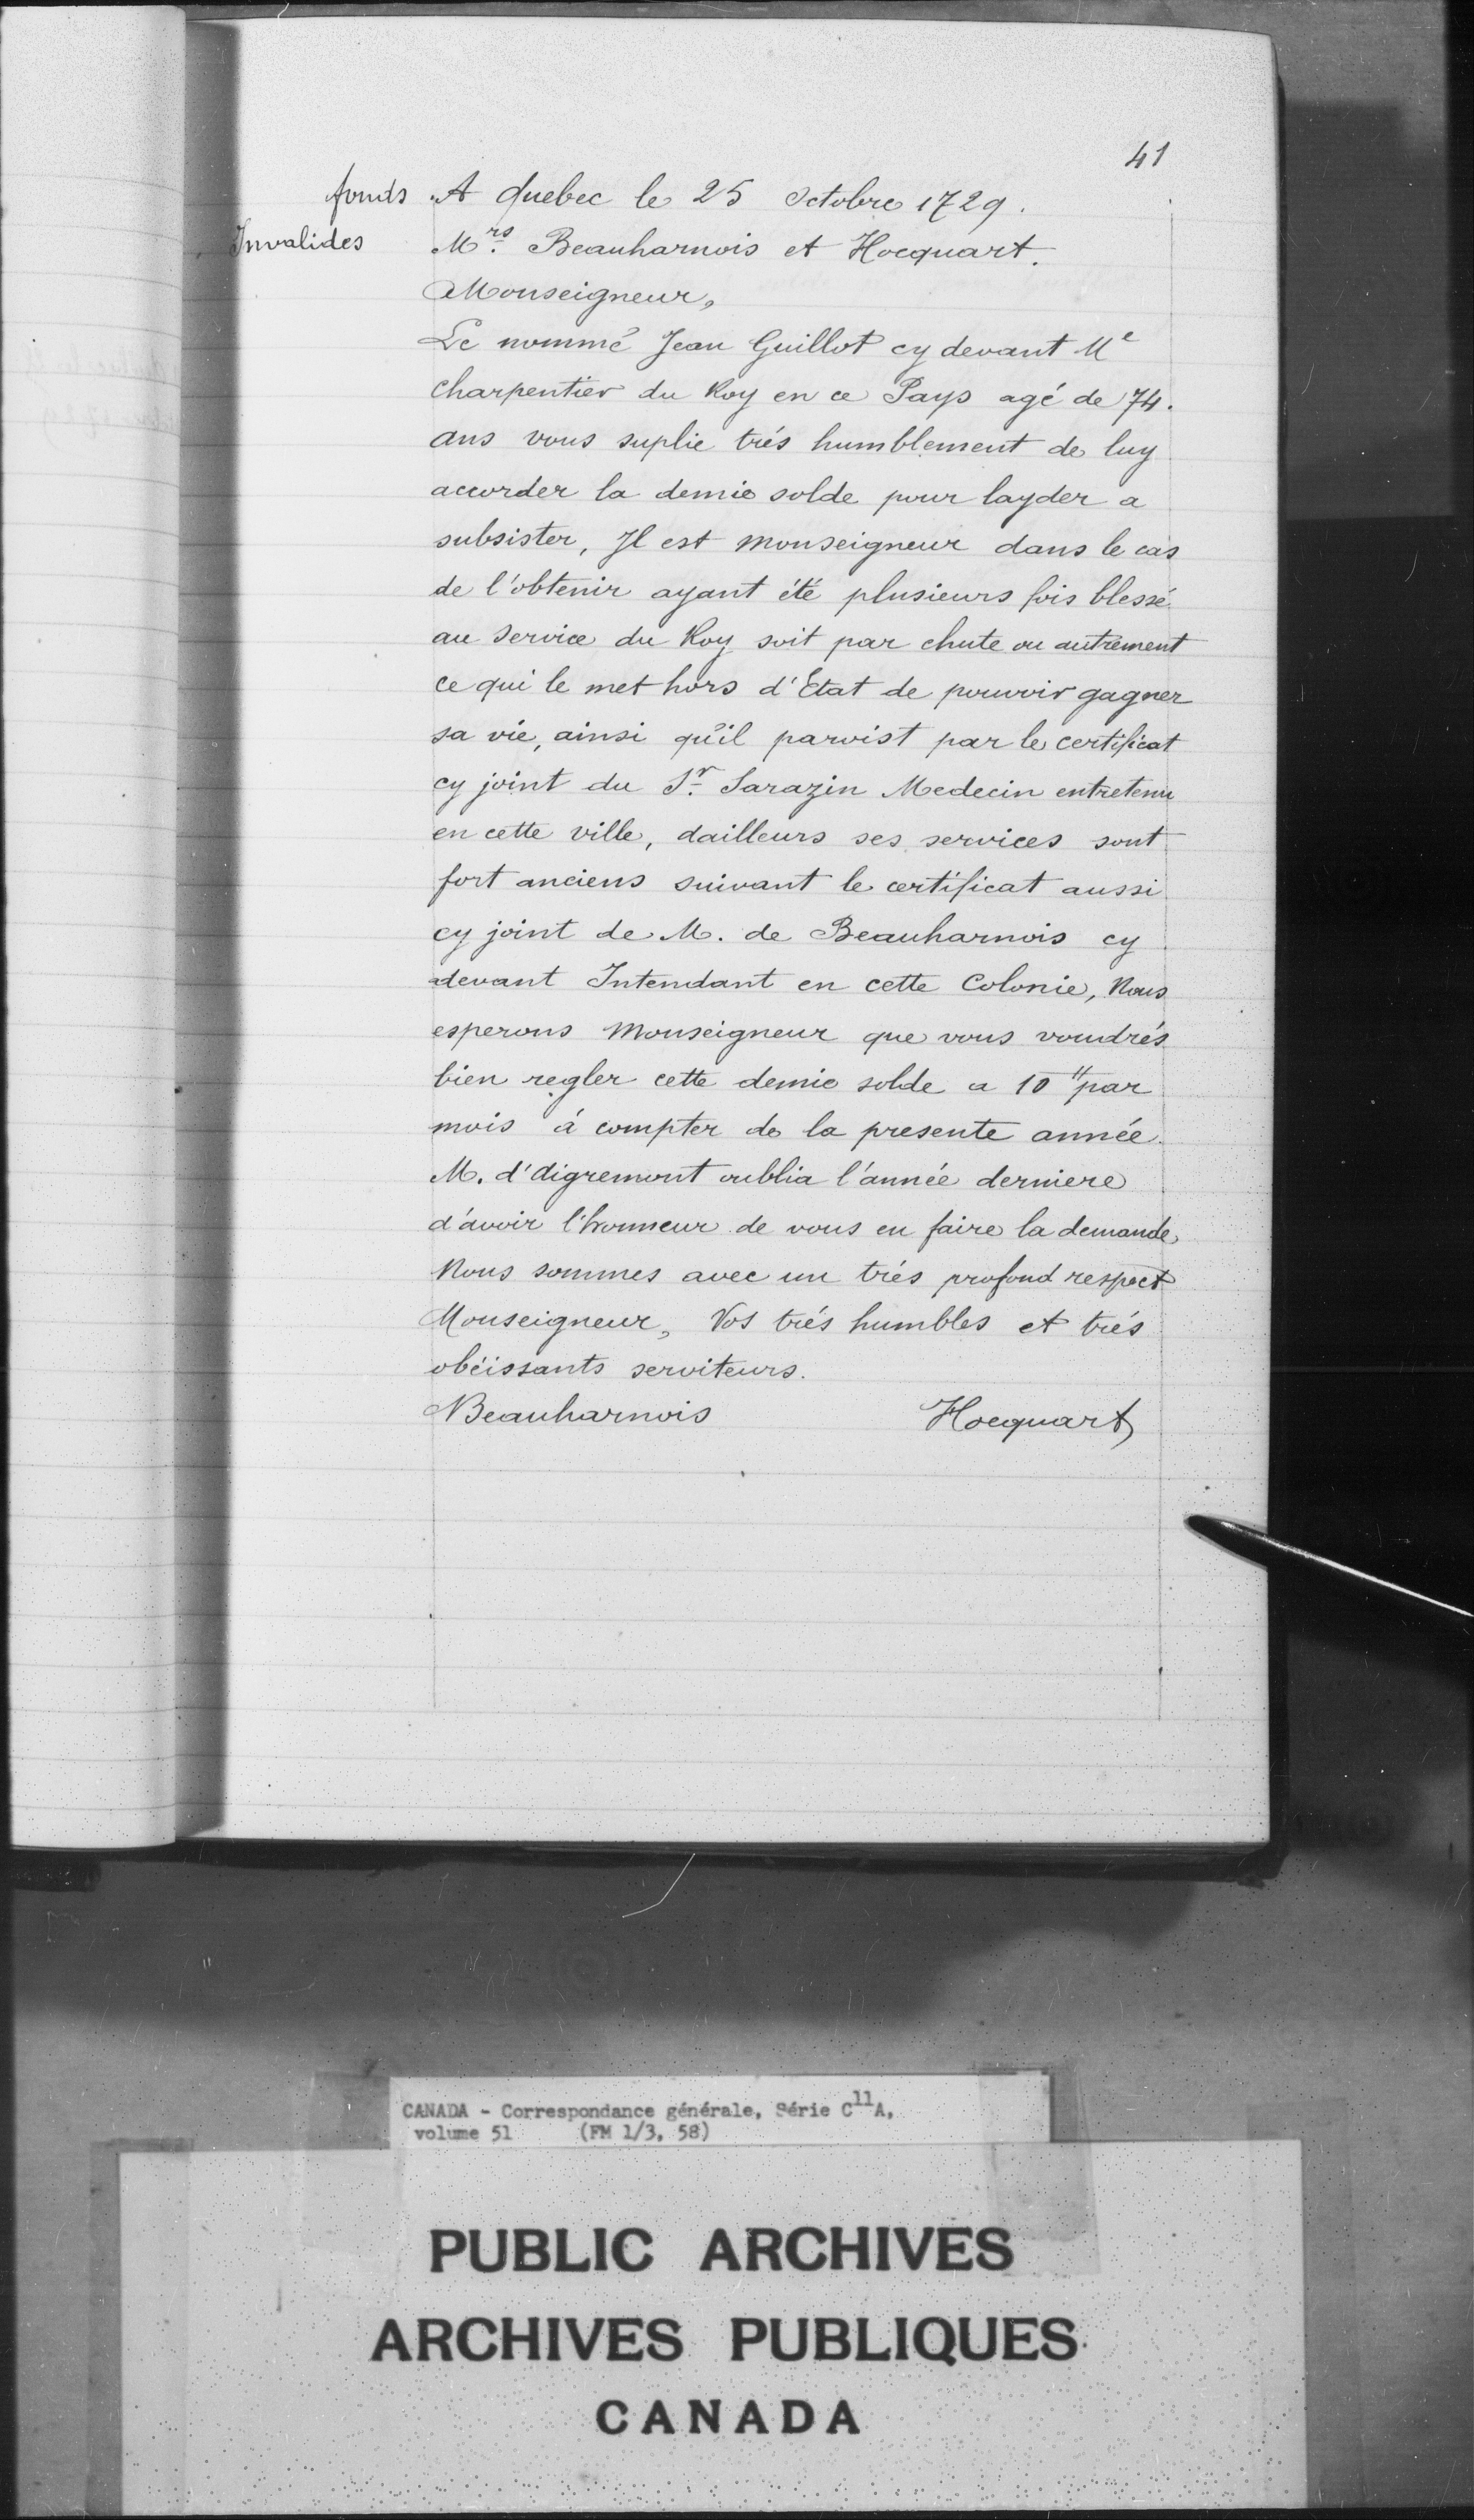 41
fonds
Invalides
A Quebec le 25 octobre 1729.
Mrs. Beauharnois et Hocquart.
Monseigneur,
Le nommé Jean Guillot cy devant Me
charpentier du Roy en ce Pays agé de 74.
ans vous suplie trés humblement de luy
accorder la demie solde pour layder a
subsister, Il est Monseigneur dans le cas
de l'obtenir ayant été plusieurs fois blessé
au Service du Roy soit par chute ou autrement
ce qui le met hors d'Etat de pouvoir gagner
sa vie, ainsi qu'il paroist par le certificat
cy joint du Sr. Sarazin Medecin entretenu
en cette ville, dailleurs ses services sont
fort anciens suivant le certificat aussi
cy joint de M. de Beauharnois cy
devant Intendant en cette Colonie, Nous
esperons Monseigneur que vous voudrés
bien regler cette demie solde a 10" par
mois á compter de la presente année
M. d'aigremont oublia l'année derniere
d'avoir l'honneur de vous en faire la demande,
Nous sommes avec un trés profond respect
Monseigneur, Vos trés humbles et trés
obéissants serviteurs.
Beauharnois Hocquart
CANADA - Correspondance générale, Série C11A,
volume 51 (FM 1/3, 58)
PUBLIC ARCHIVES
ARCHIVES PUBLIQUES
CANADA